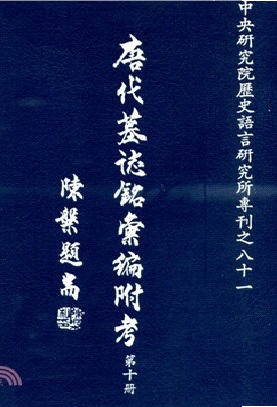 中央研究院歷史語言研究所專刊之八十一
唐代墓誌銘彙編附考
第十册
陳槃題耑